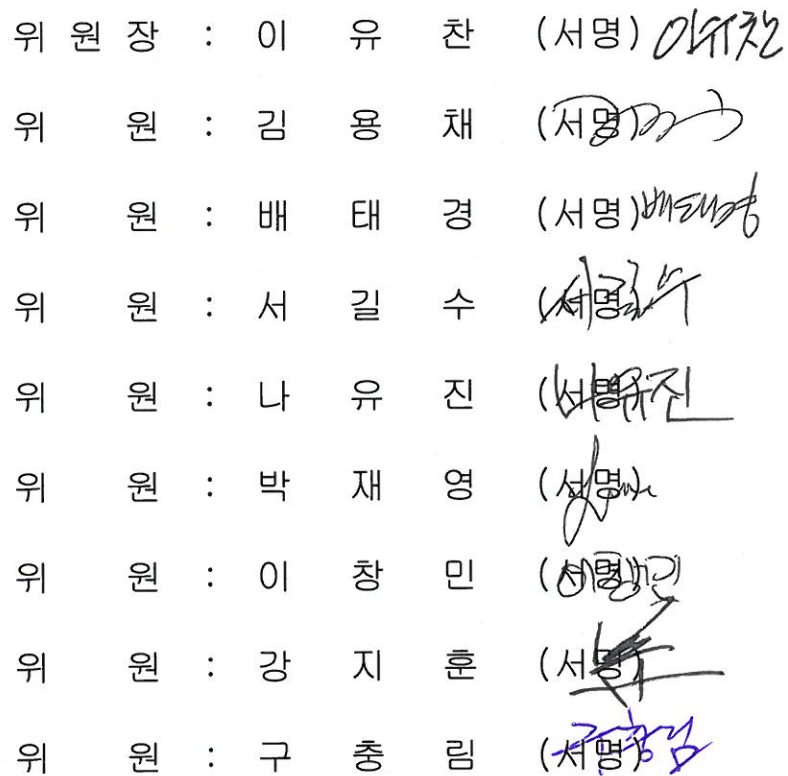 위 원 장 : 이 유 찬 (서명) 이유찬
위 원 : 김 용 채 (서명)
위 원 : 배 태 경 (서명) 배태경
위 원 : 서 길 수 (서명) 서길수
위 원 : 나 유 진 (서명) 나유진
위 원 : 박 재 영 (서명)
위 원 : 이 창 민 (서명) 이창민
위 원 : 강 지 훈 (서명)
위 원 : 구 충 림 (서명) 구충림